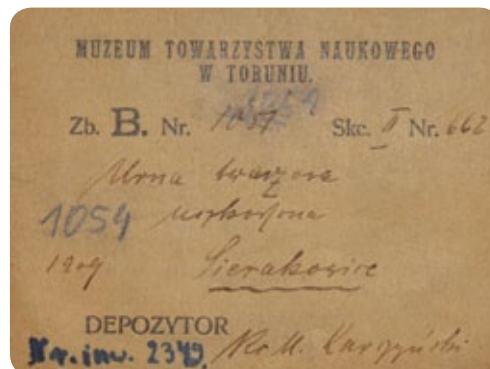 MUZEUM TOWARZYSTWA NAUKOWEGO
W TORUNIU.
Zb. B. Nr. 1057 Skc. II Nr. 662
Urna twarzowa
uszkodzona
1054
1909 Sierakowice
DEPOZYTOR
Nr. inw. 2349